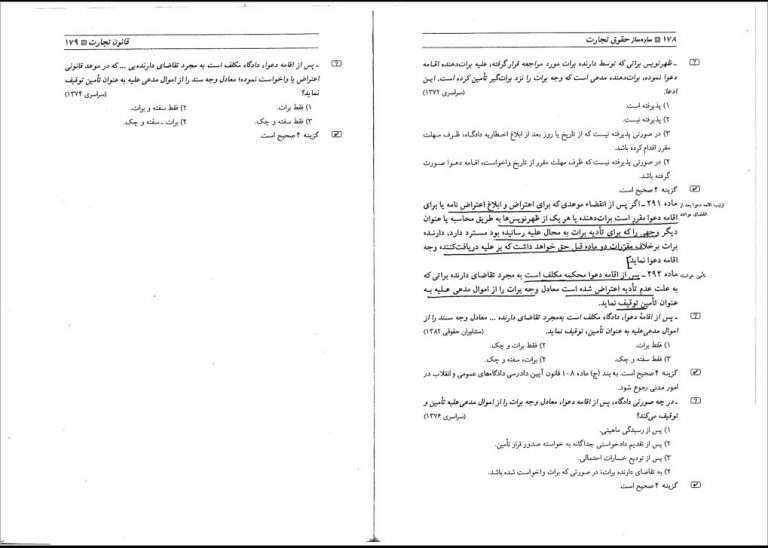 ۱۷۸ ▣ ساده‌ساز حقوق تجارت
ـ ظهرنویس براتی که توسط دارنده برات مورد مراجعه قرار گرفته، علیه برات‌دهنده اقامه
دعوا نموده، برات‌دهنده مدعی است که وجه برات را نزد برات‌گیر تأمین کرده است. این
ادعا: (سراسری ۱۳۷۲)
۱) پذیرفته است.
۲) پذیرفته نیست.
۳) در صورتی پذیرفته نیست که از تاریخ یا روز بعد از ابلاغ اخطاریه دادگاه، ظرف مهلت
مقرر اقدام کرده باشد.
۴) در صورتی پذیرفته نیست که ظرف مهلت مقرر از تاریخ واخواست، اقامه دعوا صورت
گرفته باشد.
گزینه ۴ صحیح است.
ماده ۲۹۱ ـ اگر پس از انقضاء موعدی که برای اعتراض و ابلاغ اعتراض نامه یا برای
اقامه دعوا مقرر است برات‌دهنده یا هر یک از ظهرنویس‌ها به طریق محاسبه یا عنوان
دیگر وجهی را که برای تأدیه برات به محال علیه رسانیده بود مسترد دارد، دارنده
برات برخلاف مقررات دو ماده قبل حق خواهد داشت که بر علیه دریافت‌کننده وجه
اقامه دعوا نماید.
ماده ۲۹۲ ـ پس از اقامه دعوا محکمه مکلف است به مجرد تقاضای دارنده براتی که
به علت عدم تأدیه اعتراض شده است معادل وجه برات را از اموال مدعی علیه به
عنوان تأمین توقیف نماید.
ـ پس از اقامهٔ دعوا، دادگاه مکلف است به‌مجرد تقاضای دارنده ... معادل وجه سند را از
اموال مدعی‌علیه به عنوان تأمین، توقیف نماید. (مشاوران حقوقی ۱۳۸۲)
۱) فقط برات. ۲) فقط برات و چک.
۳) فقط سفته و چک. ۴) برات، سفته و چک.
گزینه ۴ صحیح است. به بند (ج) ماده ۱۰۸ قانون آیین دادرسی دادگاه‌های عمومی و انقلاب در
امور مدنی رجوع شود.
ـ در چه صورتی دادگاه، پس از اقامه دعوا، معادل وجه برات را از اموال مدعی‌علیه تأمین و
توقیف می‌کند؟ (سراسری ۱۳۷۶)
۱) پس از رسیدگی ماهیتی.
۲) پس از تقدیم دادخواستی جداگانه به خواسته صدور قرار تأمین.
۳) پس از تودیع خسارات احتمالی.
۴) به تقاضای دارنده برات؛ در صورتی که برات واخواست شده باشد.
گزینه ۴ صحیح است.
قانون تجارت ▣ ۱۷۹
ـ پس از اقامه دعوا، دادگاه مکلف است به مجرد تقاضای دارنده‌یی ... که در موعد قانونی
اعتراض یا واخواست نموده؛ معادل وجه سند را از اموال مدعی‌علیه به عنوان تأمین توقیف
نماید؟ (سراسری ۱۳۷۴)
۱) فقط برات. ۲) فقط سفته و برات.
۳) فقط سفته و چک. ۴) برات ـ سفته و چک.
گزینه ۴ صحیح است.